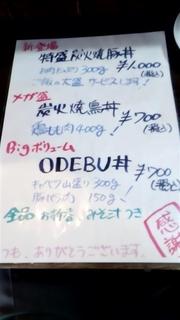 新登場
特盛炭火焼豚丼 ¥1,000
お肉たっぷり300g (税込)
ご飯の大盛サービスします!
メガ盛
炭火焼鳥丼 ¥700
鶏もも肉400g! (税込)
Bigボリューム
ODEBU丼 ¥700
キャベツ山盛り300g (税込)
豚バラ肉 150g!
全品 お新香 みそ汁つき
つも、ありがとうございます。
感謝